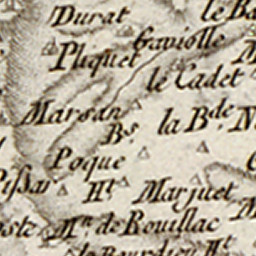 Durat
le Ba
Gaviolle
Pliquet
le Cadet
Marsan
Bs. la B.de N
Poque
Pissar
Ht. Marjuet
M.n de Rouillac
le Bourdieu Ht